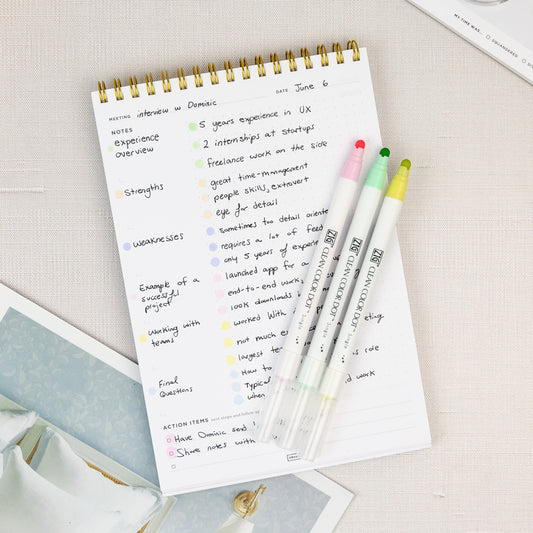 MY TIME WAS...
SQUANDERED
MEETING interview w Dominic DATE June 6
NOTES
experience overview
5 years experience in UX
2 internships at startups
freelance work on the side
Strengths
great time-management
people skills, extrovert
eye for detail
Weaknesses
sometimes too detail
requires a lot of feed
only 5 years of exper
Example of a successful project
launched app for a
end-to-end work
100k downloads
Working with teams
worked with
not much eting
largest
Final Questions
How to is role
Typical d work
when
ACTION ITEMS next steps and follow up
Have Dominic send
Share notes with
ZIG CLEAN COLOR DOT Single
ZIG CLEAN COLOR DOT Single
ZIG CLEAN COLOR DOT Single